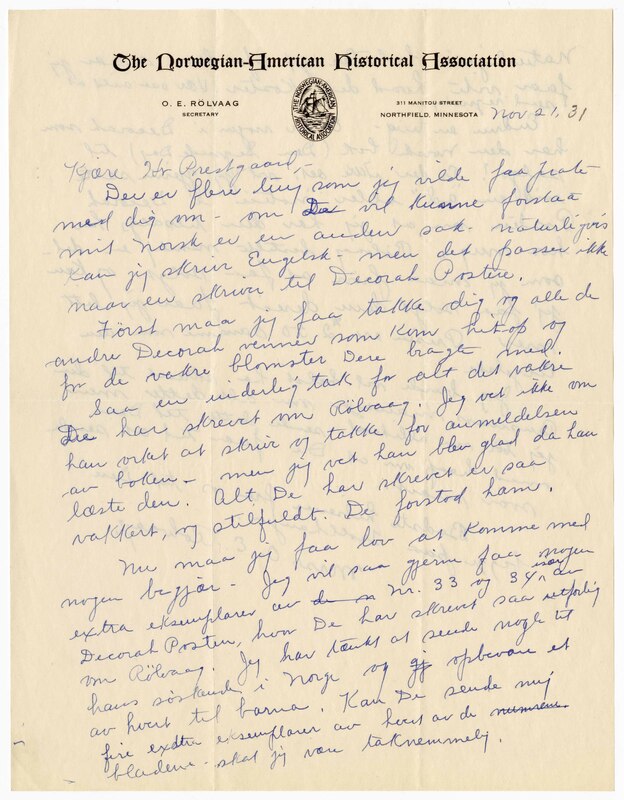 The Norwegian-American Historical Association
O. E. RÖLVAAG
SECRETARY
THE NORWEGIAN-AMERICAN HISTORICAL ASSOCIATION
311 MANITOU STREET
NORTHFIELD, MINNESOTA
Nov 21, 31
Kjære Hr Prestgaard,-
Der er flere ting som jeg vilde faa prate
med dig om - om De vil kunne forstaa
mit Norsk er en anden sak - naturligvis
kan jeg skrive Engelsk - men det passer ikke
naar en skriver til Decorah Posten.
Först maa jeg faa takke dig og alle de
andre Decorah venner som kom hit op og
for de vakre blomster Dere bragte med.
Saa en inderlig tak for alt det vakre
De har skrevet om Rölvaag. Jeg vet ikke om
han orket at skrive og takke for anmeldelsen
av boken - men jeg vet han blev glad da han
læste den. Alt De har skrevet er saa
vakkert, og stilfuldt. De forstod ham.
Nu maa jeg faa lov at komme med
nogen begjær - Jeg vil saa gjerne faa nogen
extra eksemplarer av Nr. 33 og 34 især av
Decorah Posten, hvor De har skrevet saa
om Rölvaag. Jeg har tænkt at sende nogle til
hans söskende i Norge og opbevare et
av hvert til barna. Kan De sende mig
fire extra eksemplarer av hvert av de
bladene - skal jeg være taknemmelig.